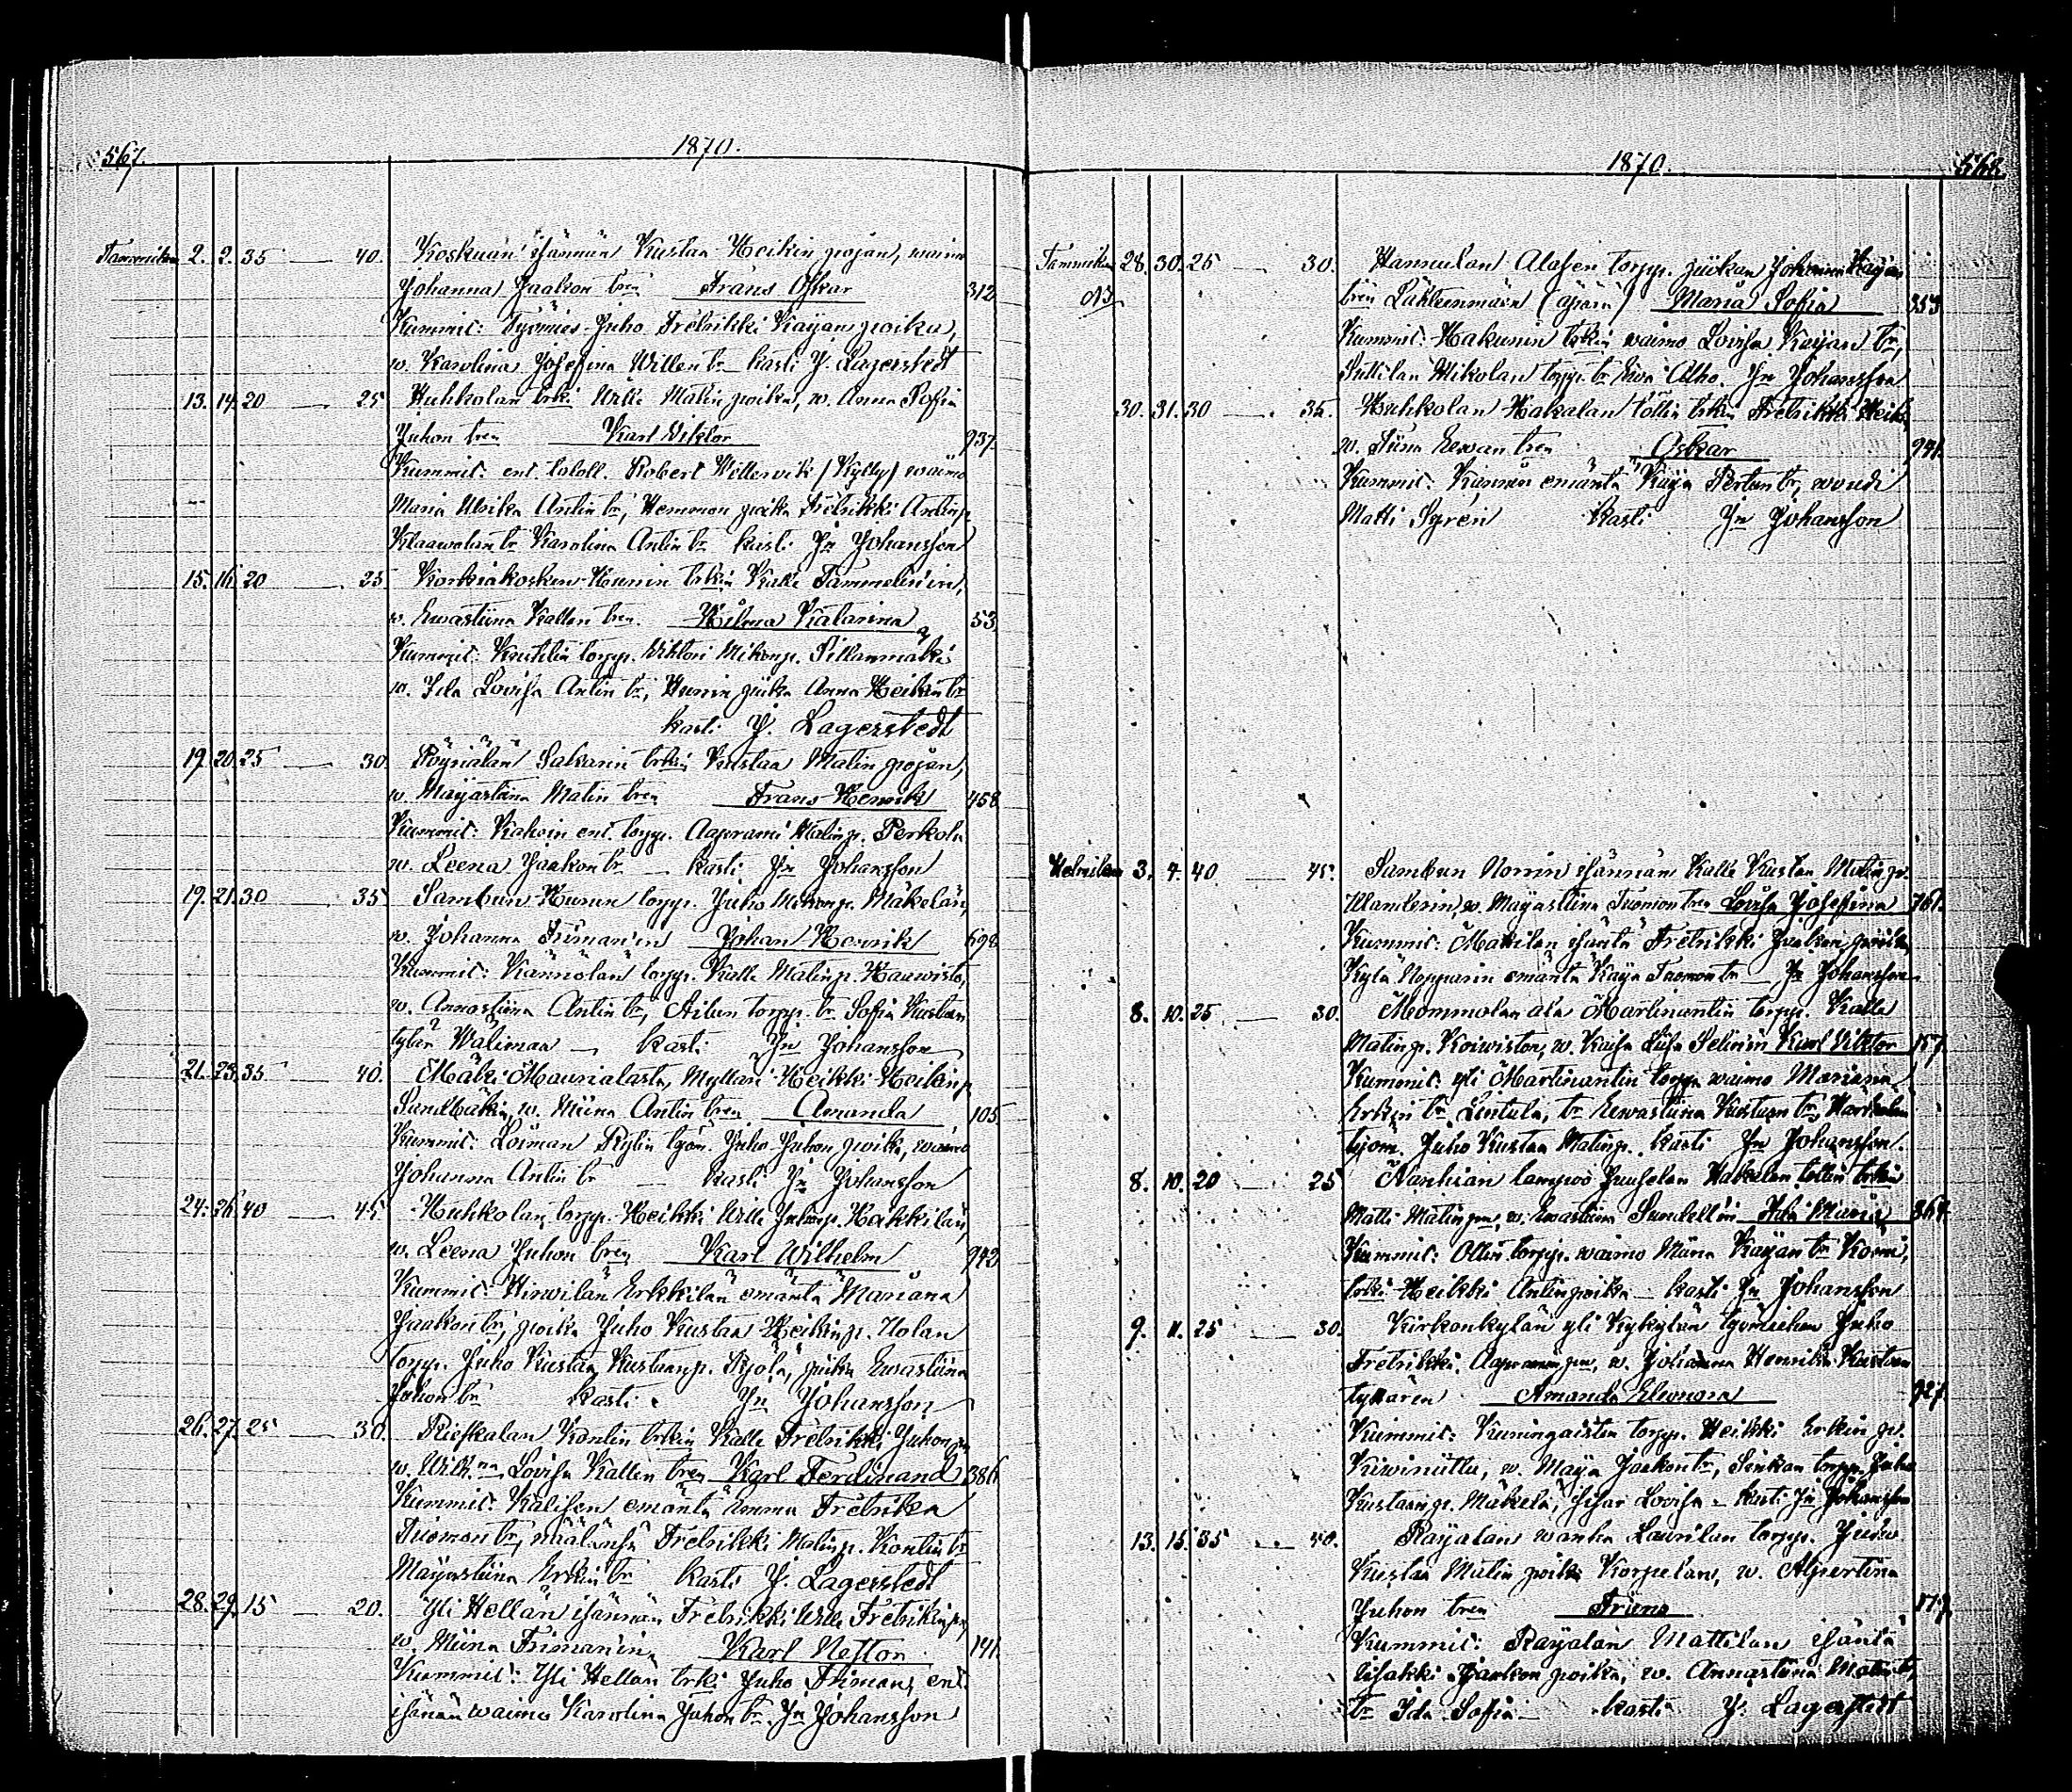 567. 1870.
Tammikuu 2. 2. 35 — 40. Koskuan isännän Kustaa Heikin pojan, waimo
Johanna Jaakon tren Frans Oskar 312
Kummit: Työmies Juho Fredrikki Kaijan poika,
w. Karolina Josefina Willen tr kasti J. Lagerstedt
13. 14. 20 — 25 Huhkolan trki Wille Matin poika, w. Anna Sofia
Juhon tren Karl Viktor 937.
Kummit: ent. Robert (Kylly) waimo
Maria Ulrika Antin tr, poika Fredrikki Antinp.
Karolina Antin tr kasti Jn Johansson
15. 16. 20 — 25 Korkiakosken Hunin trkin Kalle Tammelin'in,
w. Ewastiina Kallen tren. Hilma Katarina 53.
Kummit: torpp. Viktori Mikonp. Sillanmäki
w. Ida Lovisa Antin tr, Hunin piika Anna Heikin tr
kasti J. Lagerstedt
19. 20. 25 — 30. Röyriälän Sakarin trkin Kustaa Matin pojan,
w. Majastiina Matin tren Frans Henrik 458
Kummit: ent. torpp. Aaprami Matinp. Perkola
w. Leena Jaakon tr — kasti Jn Johansson
19. 21. 30 — 35 Sambun Hunin torpp. Juho Mäkelän,
w. Johanna Friman'in Johan Henrik 698
Kummit: Kännölän torpp. Kalle Matinp. Hauwisto,
w. Annastiina Antin tr, torpp. tr. Sofia Kustaan
tytär Walimaa — kasti Jn Johansson
21. 23. 35 — 40. Mäki Maurialasta, Mylläri Heikki Heikinp.
w. Miina Antin tren Amanda 105.
Kummit: Loiman työm. Juho Juhon poika, waimo
Johanna Antin tr — kasti Jn Johansson
24. 26. 40 — 45 Huhkolan torpp. Heikki Wille Juhonp. Hakkilan,
w. Leena Juhon tren Karl Wilhelm 942
Kummit: Hirwilän Erkkilän emäntä Mariana
Jaakon tr, poika Juho Kustaa Heikinp. Uotan
torpp. Juho Kustaa Kustaanp. piika Ewastiina
Juhon tr kasti Jn Johansson
26. 27. 25 — 30. Rieskalan Kontin trkin Kalle Fredrikki Juhon
w. Wilh:na Lovisa Kallen tren Karl Ferdinand 386
Kummit: Kalisen emäntä Amma Fredrika
Tuomon tr, Fredrikki Matinp. Kontin tr
Majastiina Erkin tr kasti J. Lagerstedt
28. 29. 15 — 20. Yli Hellän isännän Fredrikki Wille Fredrikin
w. Miina Friman'in, Karl Nestor 141.
Kummit: Yli Hellän trki Juho Friman, ent.
isännän waimo Karolina Juhon tr. Jn Johansson
1870. 568.
Tammikuu 28. 30. 25 — 30. Hannulan Alasen torpp. piikan Johanna Kaijan
N3 tren Lähteenmäen (äpärä) Maria Sofia 353
Kummit: Hakunin trkin waimo Lovisa Kaijan tr,
Suttilan Mikolan torpp. tr Ewa Alho. Jn Johansson
30. 31. 30 — 35. Huhkolan Hakalan töllin trkin Fredrikki Heikin
w. Stina Eewan tren Oskar 941.
Kummit: emäntä Kaija Pertun tr, woudi
Matti Syrén kasti Jn Johansson
Helmikuu 3. 4. 40 — 45. Sambun Norrin isännän Kalle Kustaa Matinp.
w. Majastiina Tuomon tren Lovisa Josefina 761.
Kummit: Mattilan isäntä Fredrikki Jaakon poika,
Kylä Nopparin emäntä Kaija Tuomon tr — Jn Johansson
8. 10. 25 — 30. Mommolan ala Martinantin torpp. Kalle
Matinp. Koiwiston, w. Kaisa Liisa Selinin Karl Viktor 157.
Kummit: yli Martinantin torpp. waimo Mariana
Erkin tr Lintula, tr Eewastiina Kustaan tr
työm. Juho Kustaa Matinp. kasti Jn Johansson.
8. 10. 20 — 25 Hakalan töllin trkin
Matti Matinpn, w. Ewastiina Sundell'in Ida Maria 364
Kummit: Ollin torpp. waimo Miina Kaijan tr
trki Heikki Antinpoika — kasti Jn Johansson
9. 11. 25 — 30. Kirkonkylän yli työmiehen Juho
Fredrikki w. Johanna Henrika Kustaan
tyttären Amanda Eleonora 927.
Kummit: Kuningaisten torpp. Heikki Erkin p.
Kiwiniittu, w. Maija Jaakon tr, torpp. Juho
Kustaanp. Mäkelä, sisar Lovisa — kasti Jn Johansson
13. 15. 35 — 40. Rajalan wanha Laurilan torpp. Juho
Kustaa Matin poika Korpelan, w. Alpertina
Juhon tren Frans 817.
Kummit: Rajalan Mattilan isäntä
Iisakki Jaakon poika, w. Annastiina Matin tr,
tr Ida Sofia — kasti J. Lagerstedt